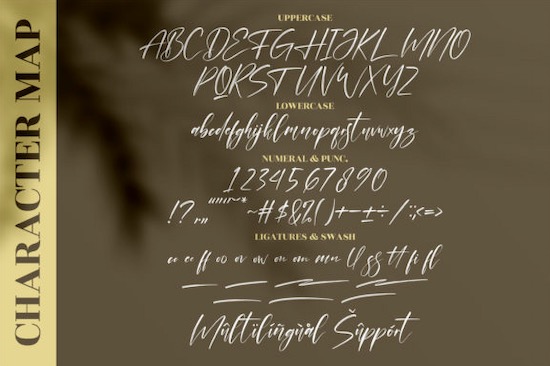 CHARACTER MAP
UPPERCASE
ABCDEFGHIJKLMNO
PQRSTUVWXYZ
LOWERCASE
abcdefghijklmnopqrstuvwxyz
NUMERAL & PUNC.
1234567890
!? ~#$&%()+-±÷/:;<=>
LIGATURES & SWASH
cc ee ff oo ov ow on om mn ll ss tt fi fl
Mûltïlíñgùàl Šûppórt